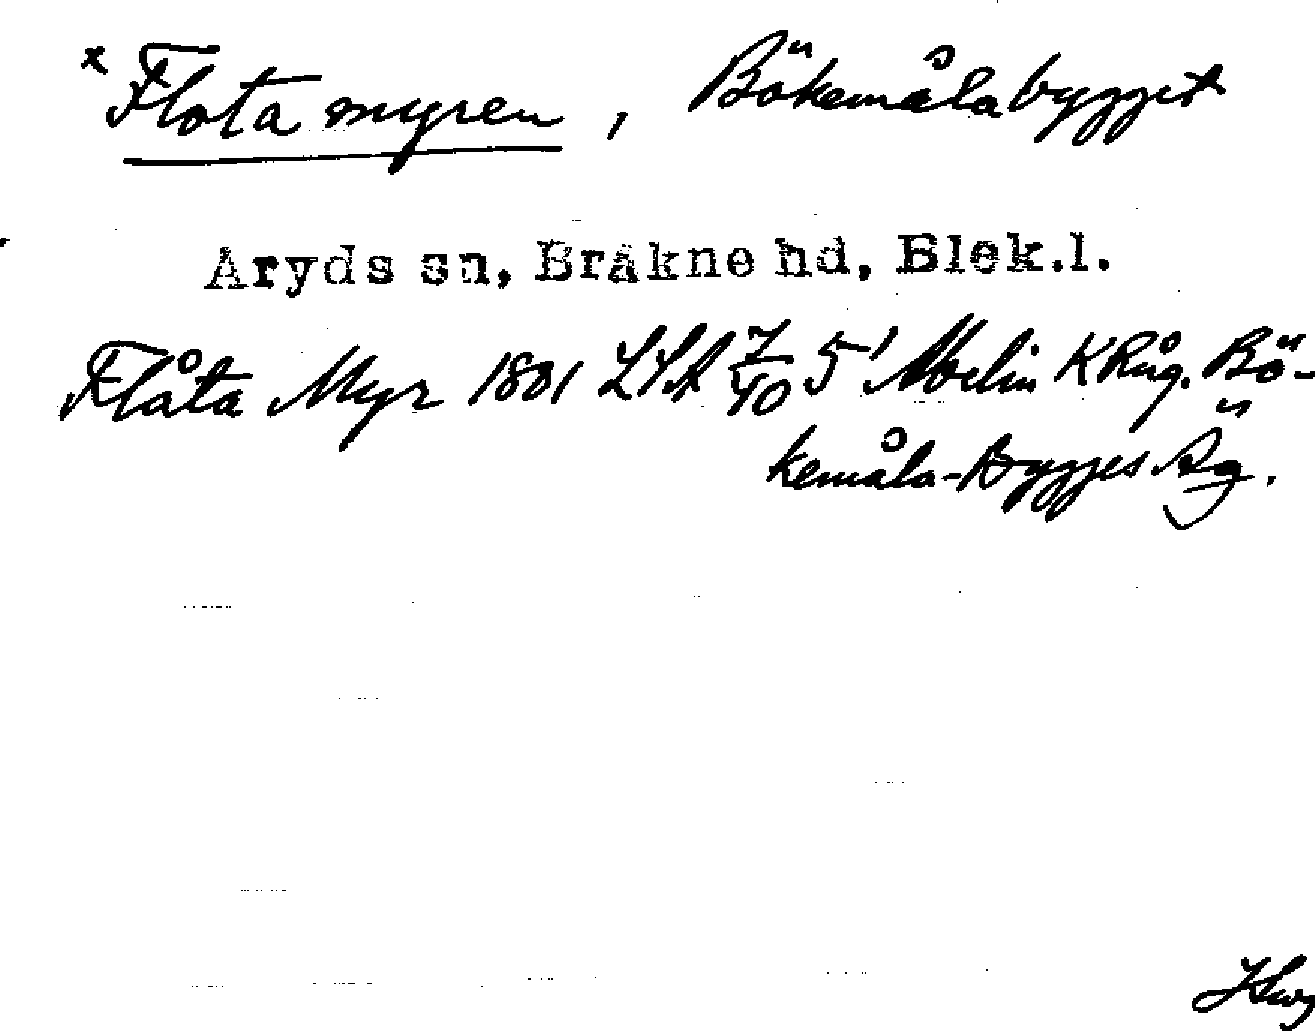 * Flata myren, Bökemålabygget
Aryds sn, Bräkne hd, Blek.l.
Flåta Myr 1801 LSA 7/40 5' Abelin K Råg. Bö-
kemåla-Bygges Äg.